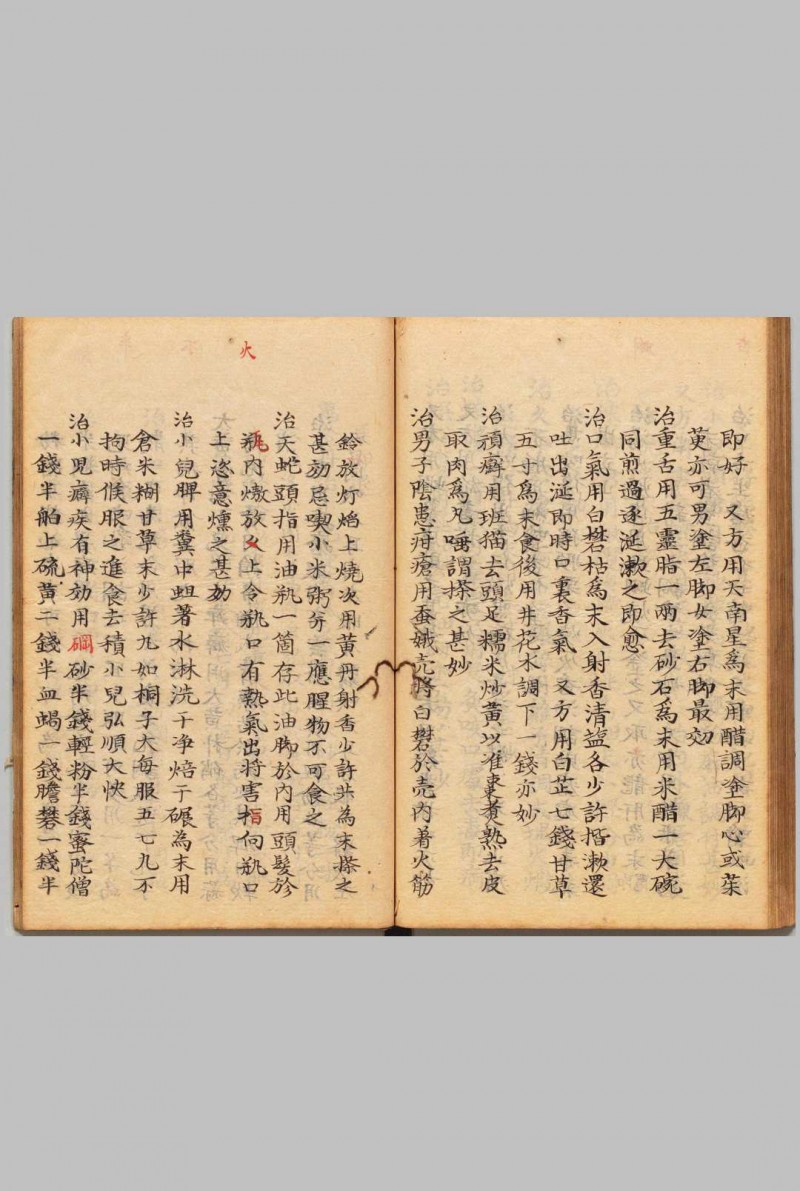 即好 又方用天南星爲末用醋調塗脚心或茱
萸亦可男塗左脚女塗右脚最効
治重舌用五靈脂一兩去砂石爲末用米醋一大碗
同煎過逐涎漱之即愈
治口氣用白礬枯爲末入射香清盐各少許揩漱還
吐出涎即時口裏香氣 又方用白芷七錢甘草
五寸爲末食後用井花水調下一錢亦妙
治頑癬用班猫去頭足糯米炒黄以准棗煑熟去皮
取肉爲凢唾謂搽之甚妙
治男子陰患疳瘡用蚕娥売將白礬於売内着火筋
鈴放灯焰上燒次用黄丹射香少許共為末搽之
甚効忌喫小米粥芥一應腥物不可食之
治天蛇頭指用油瓶一箇存此油脚於内用頭髮於
瓶内燉放火上令瓶口有熟氣出将害指向瓶口
上恣意燻之甚効
治小兒脾用糞中蛆著水淋洗干净焙干碾為末用
倉米糊甘草末少許九如桐子大每服五七九不
拘時候服之進食去積小兒弘順大快
治小児癖疾有神効用硇砂半錢輕粉半錢蜜陀僧
一錢半舶上硫黄二錢半血蝎一錢膽礬一錢半
火